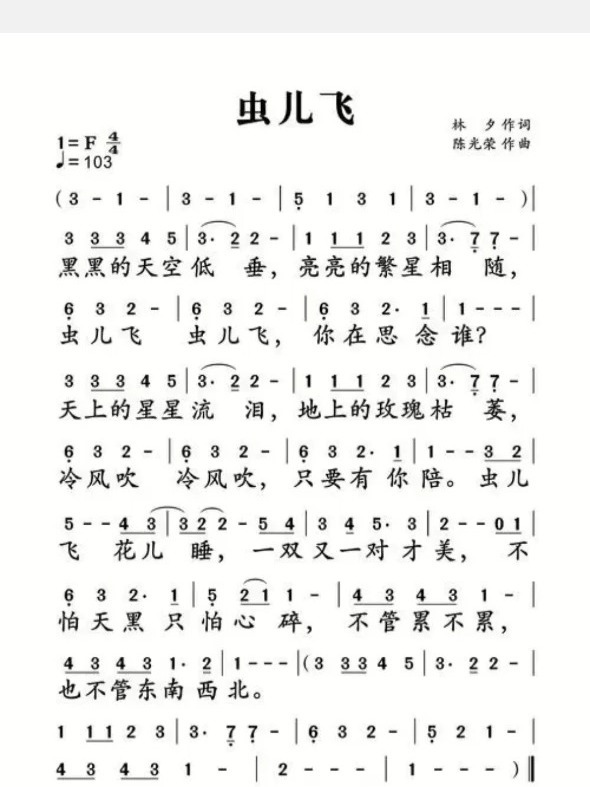 虫儿飞
林 夕 作 词
陈光荣 作 曲
1= F 4/4
♩= 103
( 3 - 1 - | 3 - 1 - | 5̣ 1 3 1 | 3 - 1 - ) |
3 3 3 4 5 | 3· 2 2 - | 1 1 1 2 3 | 3· 7̣ 7̣ - |
黑黑的天空低 垂，亮亮的繁星相 随，
6̣ 3 2 - | 6̣ 3 2 - | 6̣ 3 2· 1 | 1 - - - |
虫儿飞 虫儿飞，你在思 念谁?
3 3 3 4 5 | 3· 2 2 - | 1 1 1 2 3 | 3· 7̣ 7̣ - |
天上的星星流 泪，地上的玫瑰枯 萎，
6̣ 3 2 - | 6̣ 3 2 - | 6̣ 3 2· 1 | 1 - - 3 2 |
冷风吹 冷风吹，只要有 你陪。虫儿
5 - - 4 3 | 3 2 2 - 5 4 | 3 4 5· 3 | 2 - - 0 1 |
飞 花儿 睡，一双又一对才美，不
6̣ 3 2· 1 | 5̣ 2 1 1 - | 4 3 4 3 1 - |
怕天黑 只怕心 碎， 不管累不累，
4 3 4 3 1· 2 | 1 - - - | ( 3 3 3 4 5 | 3· 2 2 - |
也不管东南西北。
1 1 1 2 3 | 3· 7̣ 7̣ - | 6̣ 3 2 - | 5̣ 2 1 - |
4 3 4 3 1 - | 2 - - - | 1 - - - ) ‖